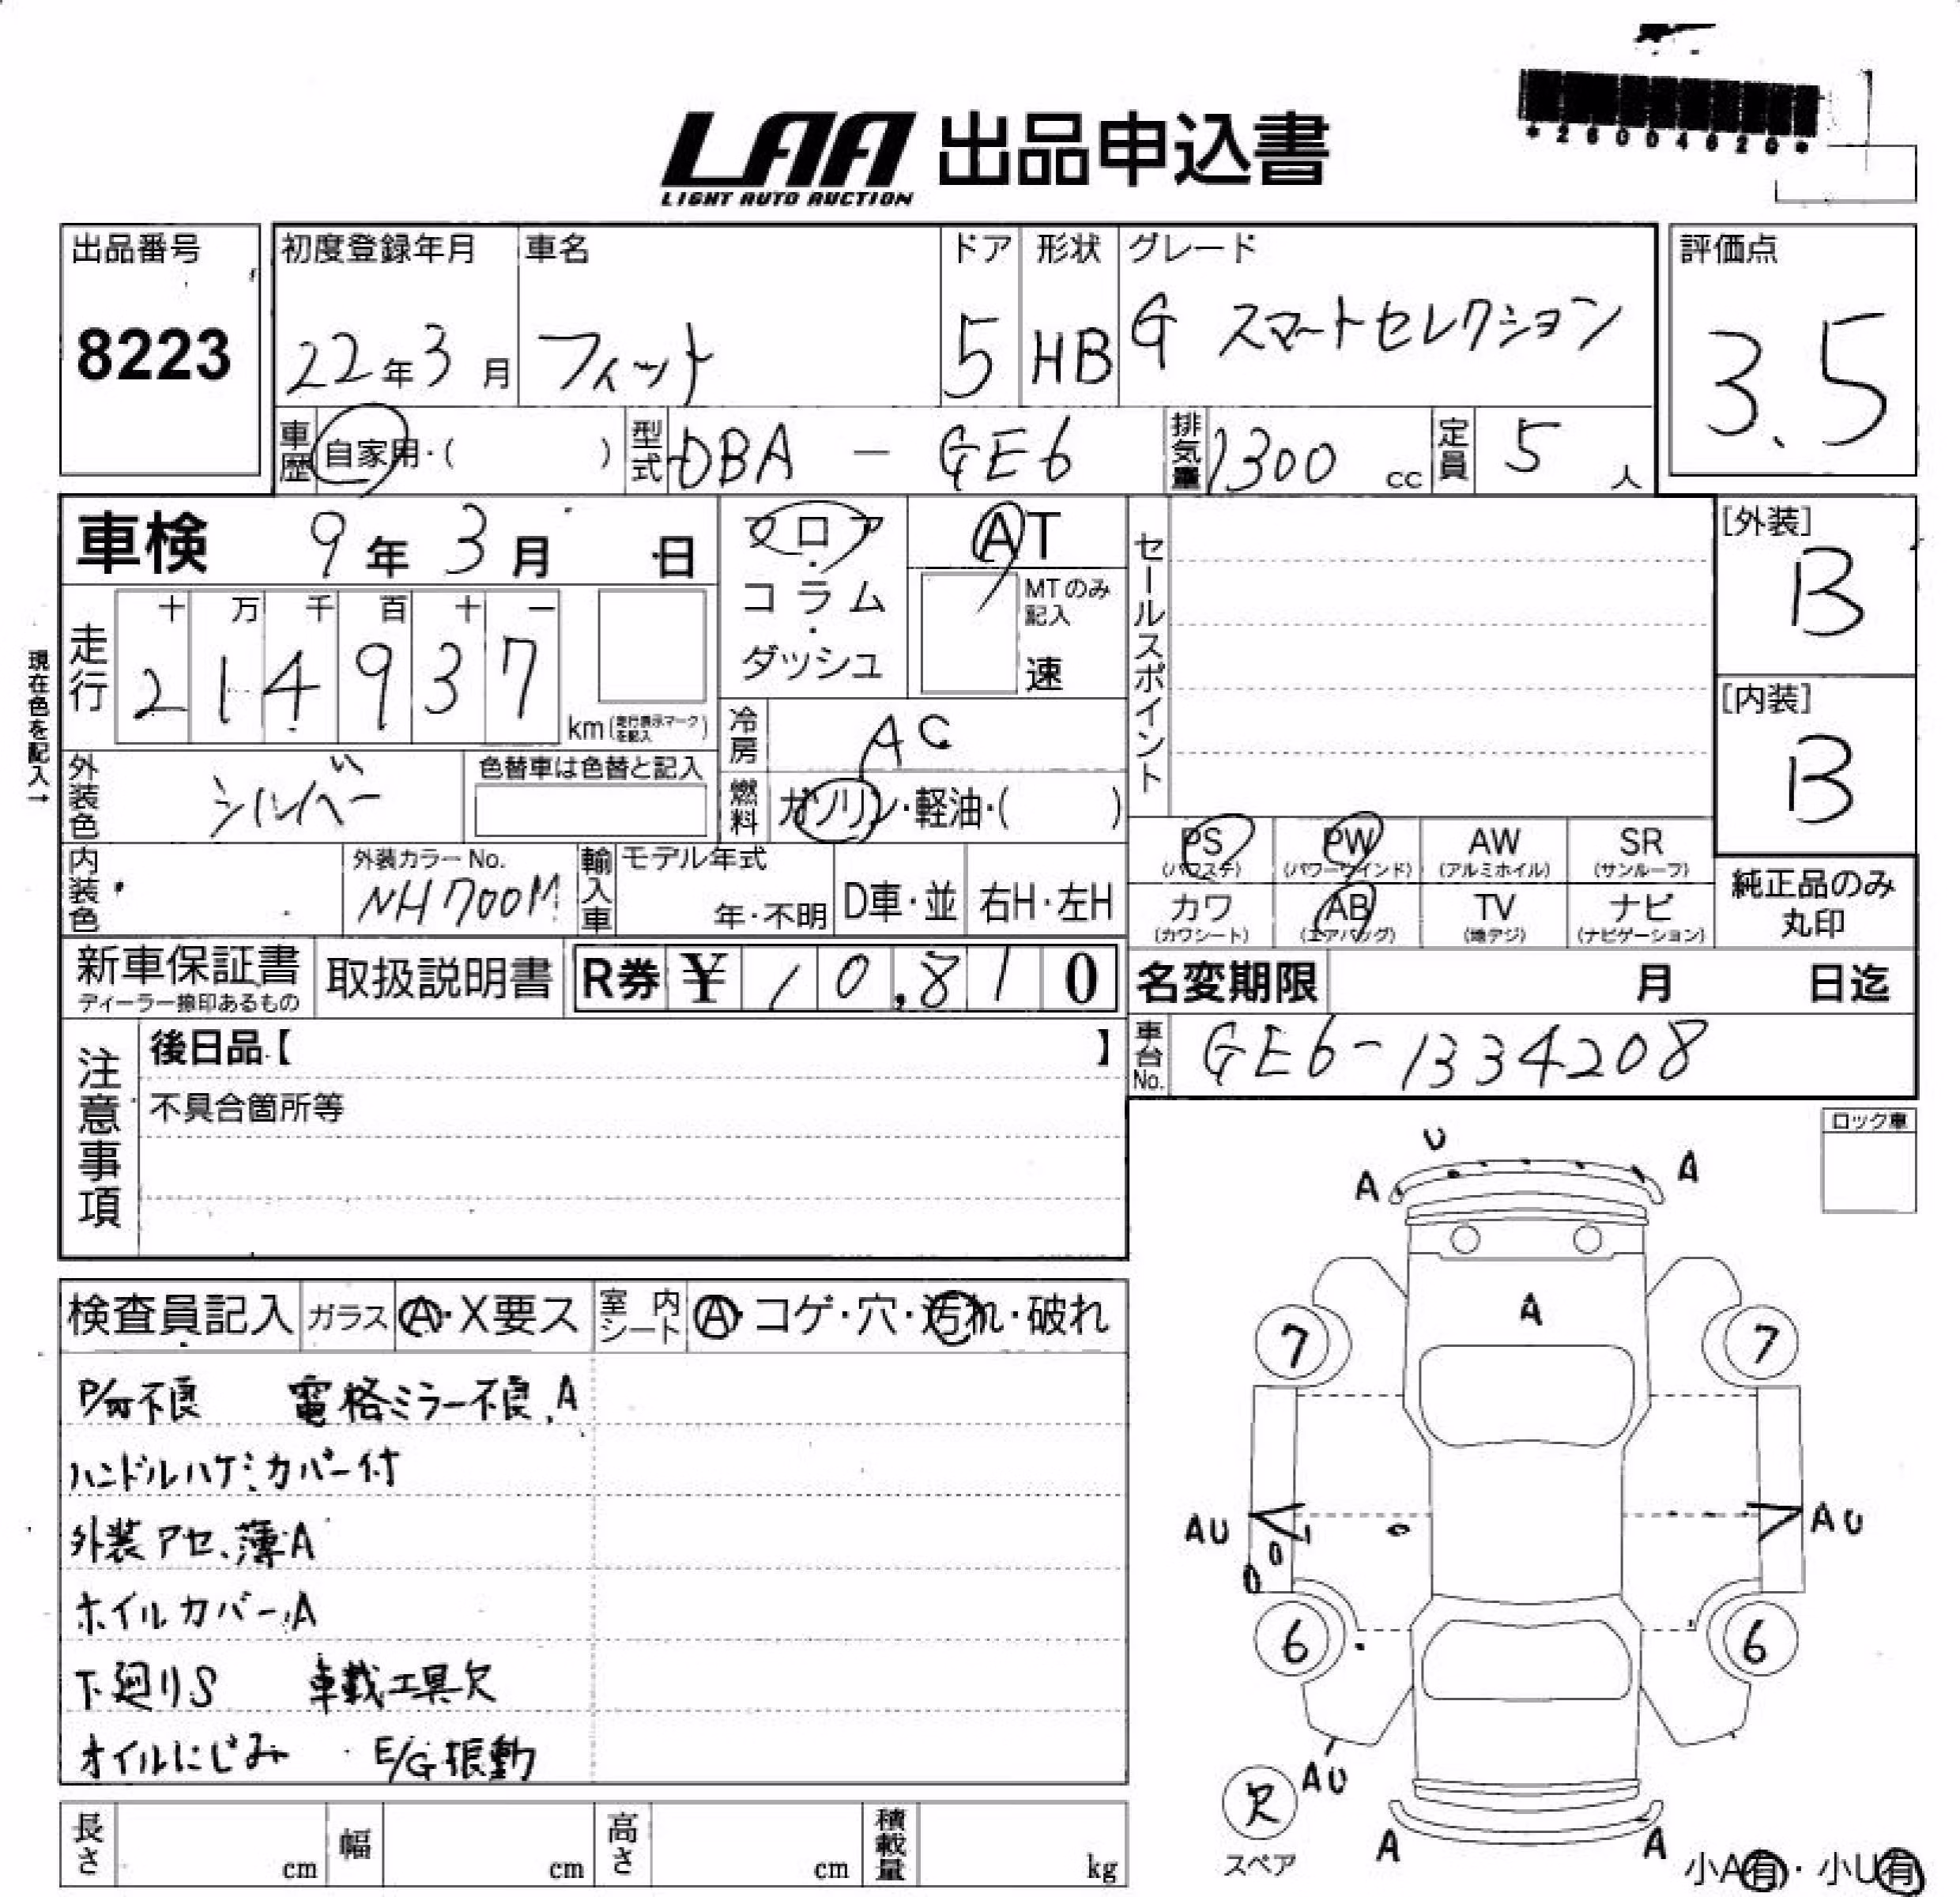 *26004620*
LAA 出品申込書
LIGHT AUTO AUCTION
出品番号 初度登録年月 車名 ドア 形状 グレード 評価点
8223 22年3月 フィット 5 HB G スマートセレクション 3.5
車歴 自家用・( ) 型式 DBA - GE6 排気量 1300 cc 定員 5 人
車検 9年3月 日 フロア AT [外装]
コラム MTのみ記入 B
ダッシュ 速
セールスポイント
現在色を記入→
走行 十 万 千 百 十 一
2 1 4 9 3 7 km(走行表示マークを記入)
[内装]
B
冷房 AC
外装色 シルバー 色替車は色替と記入
燃料 ガソリン・軽油・( )
PS PW AW SR
(パワステ) (パワーウインド) (アルミホイル) (サンルーフ)
カワ AB TV ナビ
(カワシート) (エアバッグ) (地デジ) (ナビゲーション)
純正品のみ
丸印
内装色 外装カラーNo. 輸入車 モデル年式
NH700M 年・不明 D車・並 右H・左H
新車保証書 取扱説明書 R券 ¥ 10,810 名変期限 月 日迄
ディーラー捺印あるもの
車台No. GE6-1334208
注意事項
後日品【 】
不具合箇所等
ロック車
検査員記入 ガラス A・X要ス 室内シート A・コゲ・穴・汚れ・破れ
P/W不良 電格ミラー不良、A
ハンドルハゲミカバー付
外装アセ、薄A
ホイルカバーA
下廻りS 車載工具欠
オイルにじみ E/G振動
長さ cm 幅 cm 高さ cm 積載量 kg
U
A A
A
7 7
AU AU
6 6
AU
欠
スペア
A A
小A有・小U有